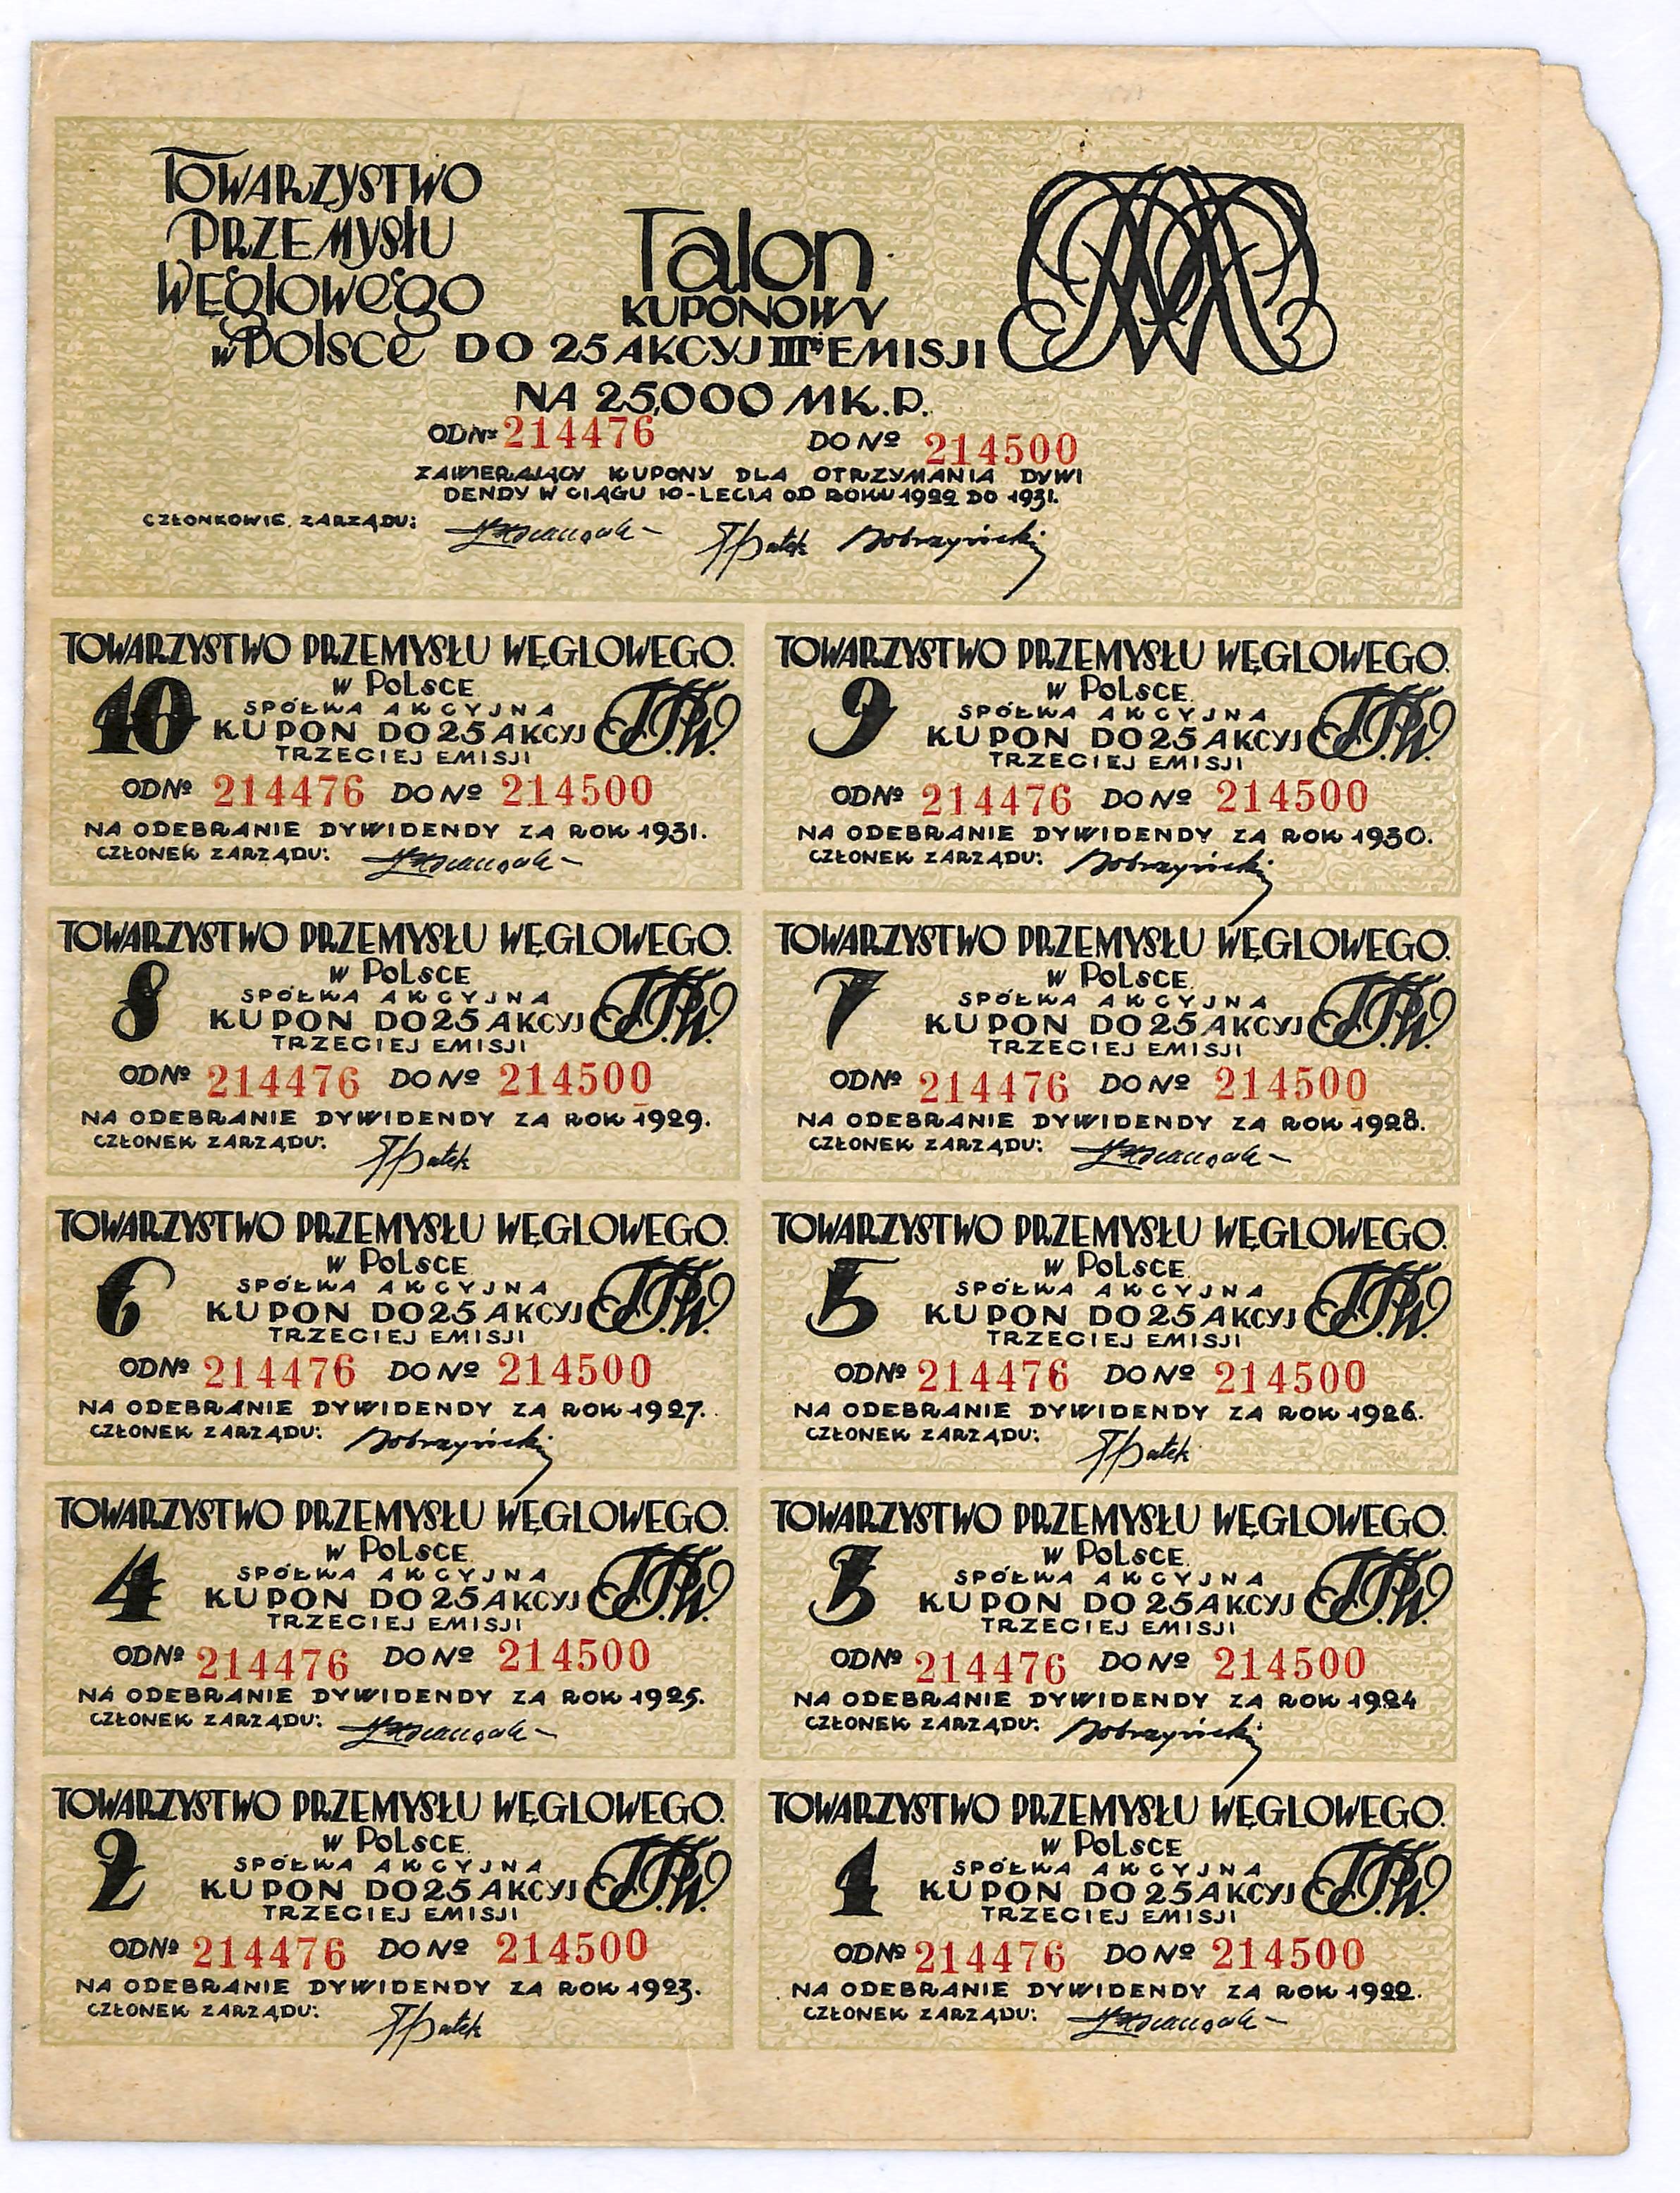 TOWARZYSTWO
PRZEMYSŁU
WĘGLOWEGO
w POLSCE
Talon
KUPONOWY
DO 25 AKCYJ IIIej EMISJI
NA 25,000 MK.P.
OD Nº 214476 DO Nº 214500
ZAWIERAJĄCY KUPONY DLA OTRZYMANIA DYWI
DENDY W CIĄGU 10-LECIA OD ROKU 1922 DO 1931.
CZŁONKOWIE ZARZĄDU:
TOWARZYSTWO PRZEMYSŁU WĘGLOWEGO.
W POLSCE
10 SPÓŁKA AKCYJNA
KUPON DO 25 AKCYJ T.P.W.
TRZECIEJ EMISJI
OD Nº 214476 DO Nº 214500
NA ODEBRANIE DYWIDENDY ZA ROK 1931.
CZŁONEK ZARZĄDU:
TOWARZYSTWO PRZEMYSŁU WĘGLOWEGO.
W POLSCE.
9 SPÓŁKA AKCYJNA
KUPON DO 25 AKCYJ T.P.W.
TRZECIEJ EMISJI
OD Nº 214476 DO Nº 214500
NA ODEBRANIE DYWIDENDY ZA ROK 1930.
CZŁONEK ZARZĄDU: Dobrzyński
TOWARZYSTWO PRZEMYSŁU WĘGLOWEGO.
W POLSCE
8 SPÓŁKA AKCYJNA
KUPON DO 25 AKCYJ T.P.W.
TRZECIEJ EMISJI
OD Nº 214476 DO Nº 214500
NA ODEBRANIE DYWIDENDY ZA ROK 1929.
CZŁONEK ZARZĄDU:
TOWARZYSTWO PRZEMYSŁU WĘGLOWEGO.
W POLSCE.
7 SPÓŁKA AKCYJNA
KUPON DO 25 AKCYJ T.P.W.
TRZECIEJ EMISJI
OD Nº 214476 DO Nº 214500
NA ODEBRANIE DYWIDENDY ZA ROK 1928.
CZŁONEK ZARZĄDU:
TOWARZYSTWO PRZEMYSŁU WĘGLOWEGO.
W POLSCE
6 SPÓŁKA AKCYJNA
KUPON DO 25 AKCYJ T.P.W.
TRZECIEJ EMISJI
OD Nº 214476 DO Nº 214500
NA ODEBRANIE DYWIDENDY ZA ROK 1927.
CZŁONEK ZARZĄDU: Dobrzyński
TOWARZYSTWO PRZEMYSŁU WĘGLOWEGO.
W POLSCE.
5 SPÓŁKA AKCYJNA
KUPON DO 25 AKCYJ T.P.W.
TRZECIEJ EMISJI
OD Nº 214476 DO Nº 214500
NA ODEBRANIE DYWIDENDY ZA ROK 1926.
CZŁONEK ZARZĄDU:
TOWARZYSTWO PRZEMYSŁU WĘGLOWEGO.
W POLSCE
4 SPÓŁKA AKCYJNA
KUPON DO 25 AKCYJ T.P.W.
TRZECIEJ EMISJI
OD Nº 214476 DO Nº 214500
NA ODEBRANIE DYWIDENDY ZA ROK 1925.
CZŁONEK ZARZĄDU:
TOWARZYSTWO PRZEMYSŁU WĘGLOWEGO.
W POLSCE.
3 SPÓŁKA AKCYJNA
KUPON DO 25 AKCYJ T.P.W.
TRZECIEJ EMISJI
OD Nº 214476 DO Nº 214500
NA ODEBRANIE DYWIDENDY ZA ROK 1924
CZŁONEK ZARZĄDU: Dobrzyński
TOWARZYSTWO PRZEMYSŁU WĘGLOWEGO.
W POLSCE.
2 SPÓŁKA AKCYJNA
KUPON DO 25 AKCYJ T.P.W.
TRZECIEJ EMISJI
OD Nº 214476 DO Nº 214500
NA ODEBRANIE DYWIDENDY ZA ROK 1923.
CZŁONEK ZARZĄDU:
TOWARZYSTWO PRZEMYSŁU WĘGLOWEGO.
W POLSCE
1 SPÓŁKA AKCYJNA
KUPON DO 25 AKCYJ T.P.W.
TRZECIEJ EMISJI
OD Nº 214476 DO Nº 214500
NA ODEBRANIE DYWIDENDY ZA ROK 1922.
CZŁONEK ZARZĄDU: